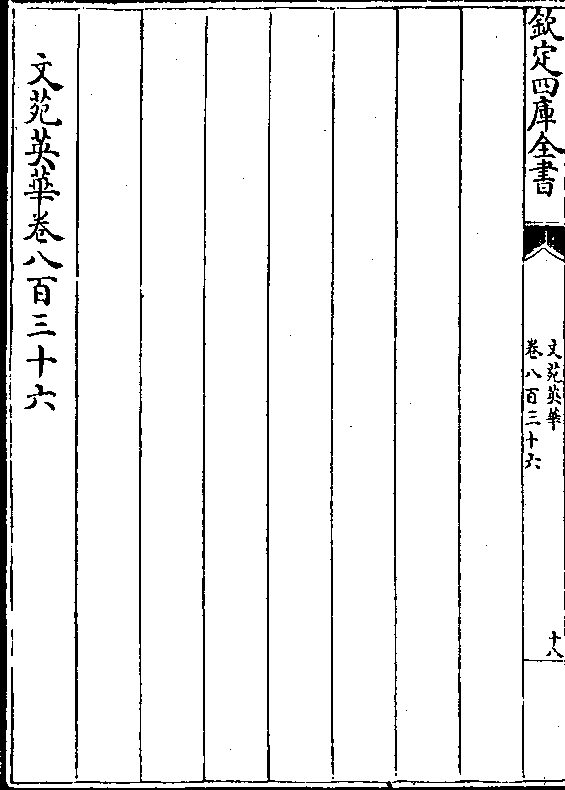 欽定四庫全書
文苑英華
卷八百三十六
十八
文苑英華卷八百三十六